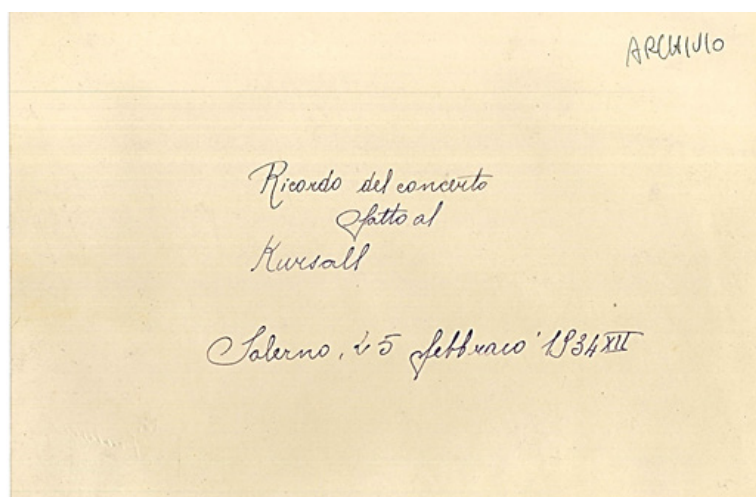 ARCHIVIO
Ricordo del concerto
fatto al
Kursall
Salerno, 25 febbraio '1934 XII